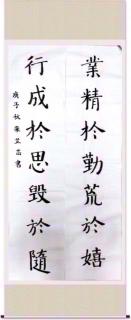 業精於勤荒於嬉
行成於思毀於隨
庚子秋朱芝茹書